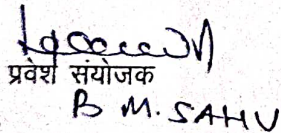 प्रवेश संयोजक
B M. SAHU